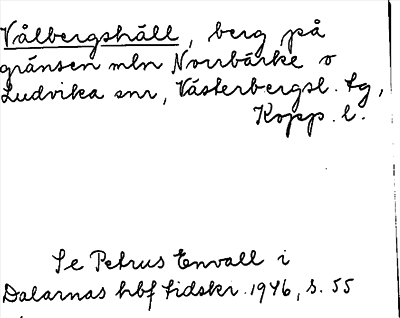 Vålbergshäll, berg på
gränsen mln Norrbärke o
Ludvika snr, Västerbergsl. tg,
Kopp. l.
Se Petrus Envall i
Dalarnas hbf tidskr. 1946, s. 55